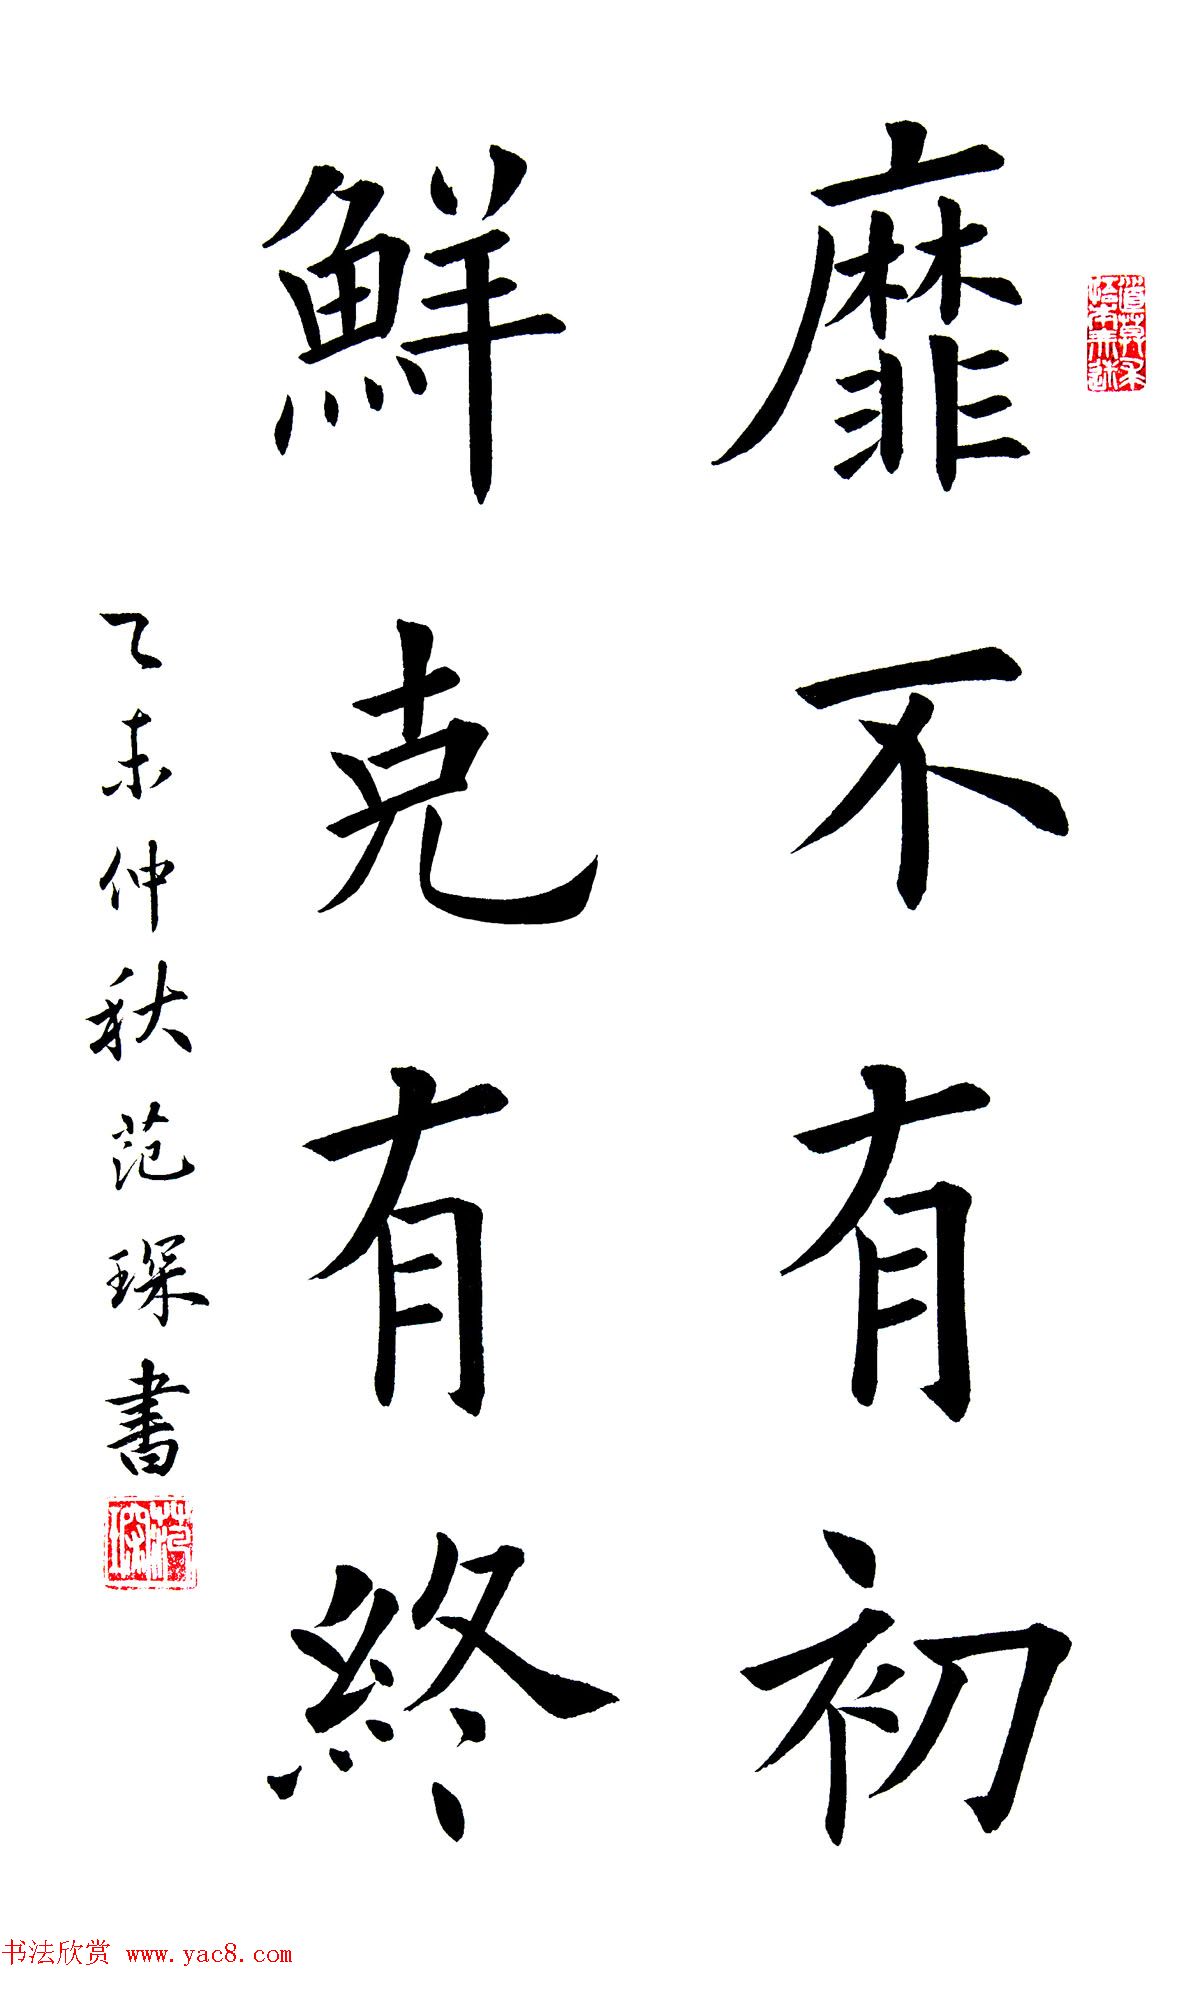 靡不有初
鮮克有終
乙未仲秋范琛書
范琛
书法欣赏 www.yac8.com